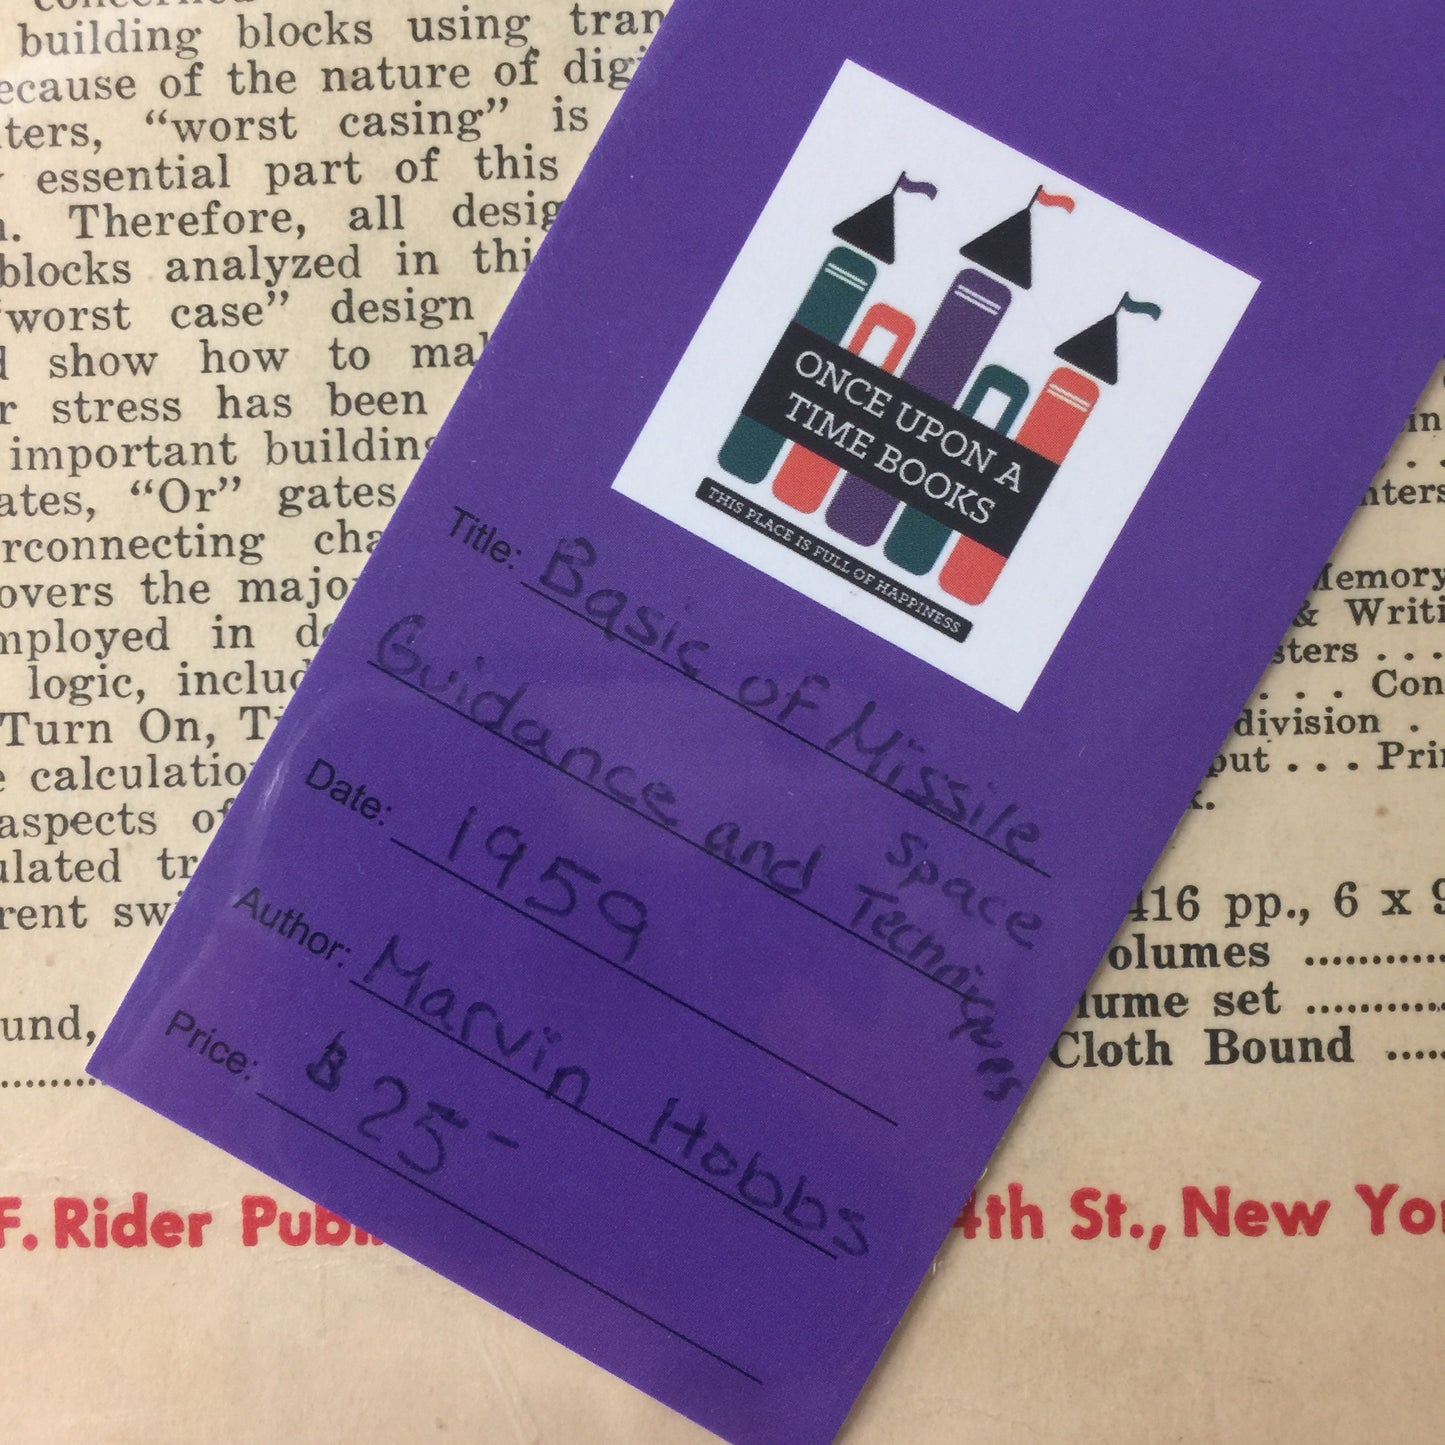 building blocks using tran
ecause of the nature of digi
ters, “worst casing” is
essential part of this
Therefore, all desig
blocks analyzed in thi
“worst case” design
show how to mal
r stress has been
important building
ates, “Or” gates
rconnecting cha
overs the majo
mployed in de
logic, includ
Turn On, Ti
e calculatio
aspects of
ulated tr
rent swi
ound,
F. Rider Publi
ONCE UPON A
TIME BOOKS
THIS PLACE IS FULL OF HAPPINESS
Title: Basic of Missile
Guidance and Space
Tecniques
Date: 1959
Author: Marvin Hobbs
Price: $25-
in
nters
Memory
& Writi
sters . . .
. . . Con
division .
put . . . Prin
k.
416 pp., 6 x 9
olumes ..........
lume set ..........
Cloth Bound .....
4th St., New Yor